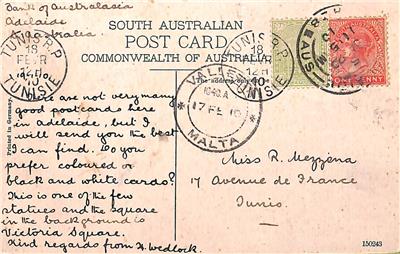 Bank of Australasia
Adelaide
Australia
SOUTH AUSTRALIAN
POST CARD
COMMONWEALTH OF AUSTRALIA
TUNIS R.P
18
FEVR
12H
TUNISIE
TUNIS R.P
18
12H
10
TUNISIE
VALLETTA
17 FE 10
MALTA
PENNY
There are not very many
good postcards here
in adelaide, but I
will send you the best
I can find. Do you
prefer coloured or
black and white cards?
This is one of the few
statues and the square
in the background is
Victoria Square.
Kind regards from H. Wedlock.
Printed in Germany.
Miss R. Mezzena
17 Avenue de France
Tunis.
150243